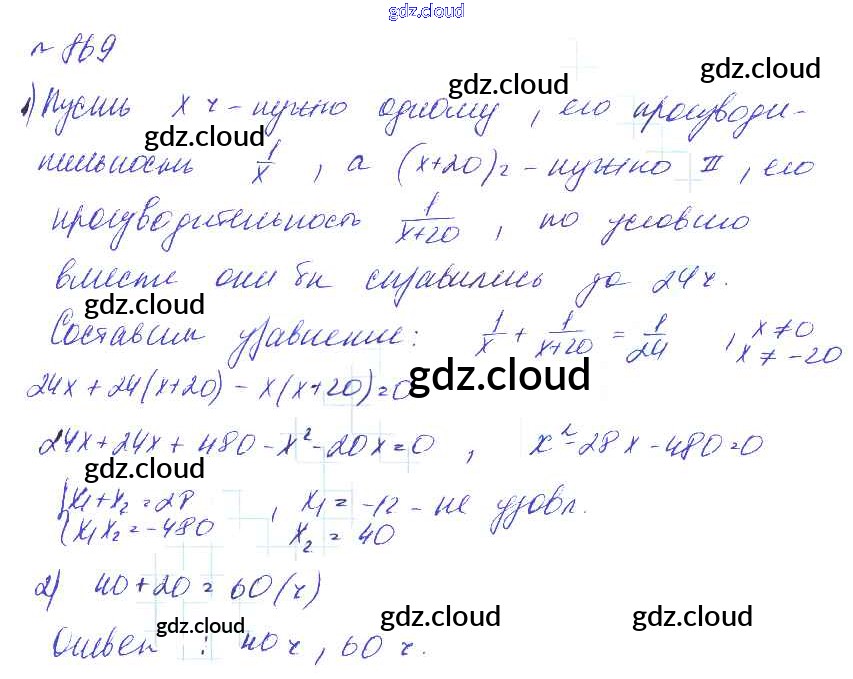 gdz.cloud
№ 869
gdz.cloud
gdz.cloud
1) Пусть x ч - нужно одному, его производи-
gdz.cloud
тельность 1/x, а (x+20) ч - нужно II, его
производительность 1/(x+20), по условию
вместе они бы справились до 24 ч.
gdz.cloud
Составим уравнение: 1/x + 1/(x+20) = 1/24, x ≠ 0
x ≠ -20
gdz.cloud
24x + 24(x+20) - x(x+20) = 0
24x + 24x + 480 - x² - 20x = 0, x² - 28x - 480 = 0
gdz.cloud
{x₁ + x₂ = 28
{x₁x₂ = -480, x₁ = -12 - не удовл.
x₂ = 40
2) 40 + 20 = 60 (ч)
gdz.cloud
gdz.cloud
gdz.cloud
Ответ: 40 ч, 60 ч.